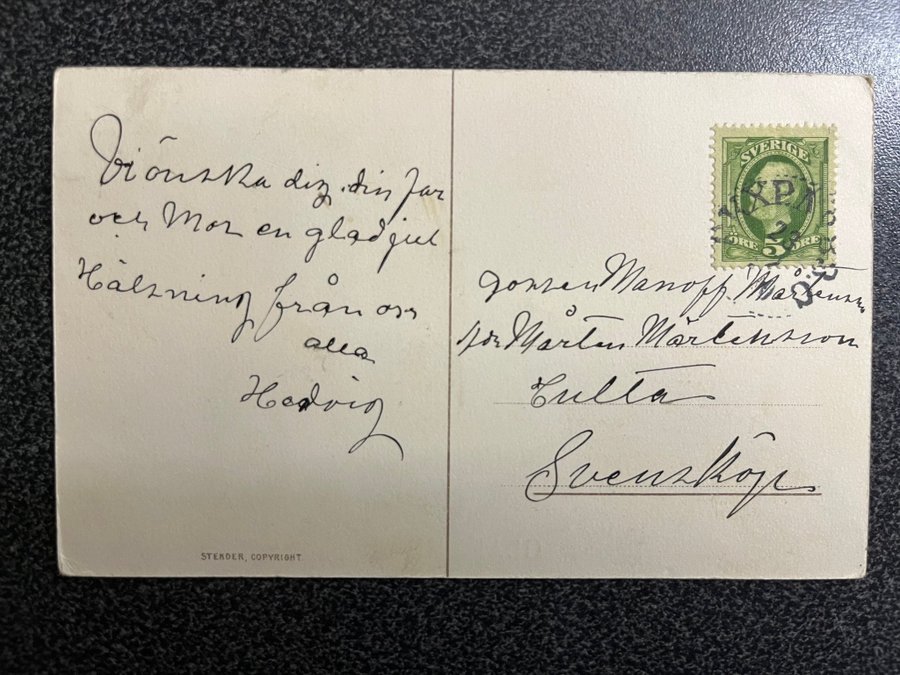 Vi önska dig. din far
och Mor en glad jul
Hälsning från oss
alla
Hedvig
STENDER, COPYRIGHT.
SVERIGE
ÖRE 5 ÖRE
PKXP
gossen Manoff Mårtensson
för Mårten Mårtensson
Tulta
Svensköp